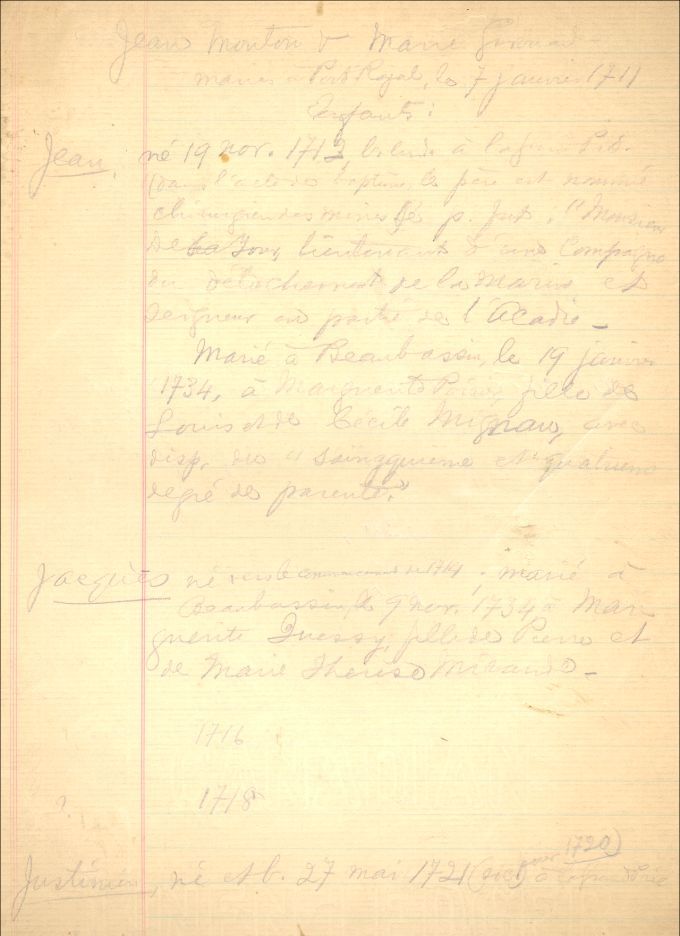 Jean Mouton & Marie Girouard
mariés à Port Royal, le 7 janvier 1711
Enfants :
Jean, né 19 nov. 1712, à la
(Dans l'acte de baptême, le père est nommé
chirurgien des mines p. : "Monsieur
De La Tour, lieutenant d'une Compagnie
du détachement de la Marine et
Seigneur en partie de l'Acadie -
Marié à Beaubassin, le 19 janvier
1734, à Marguerite Poirier, fille de
Louis et de Cécile Mignau, avec
disp. du " et quatrième
degré de parenté."
Jacques né vers le commencement de 1714 ; marié à
Beaubassin, le 9 nov. 1734 à Mar
guerite Quessy, fille de Pierre et
de Marie Thérèse Mirande -
1716
? 1718
pour 1720)
Justinien, né et b. 27 mai 1721 (sic) à